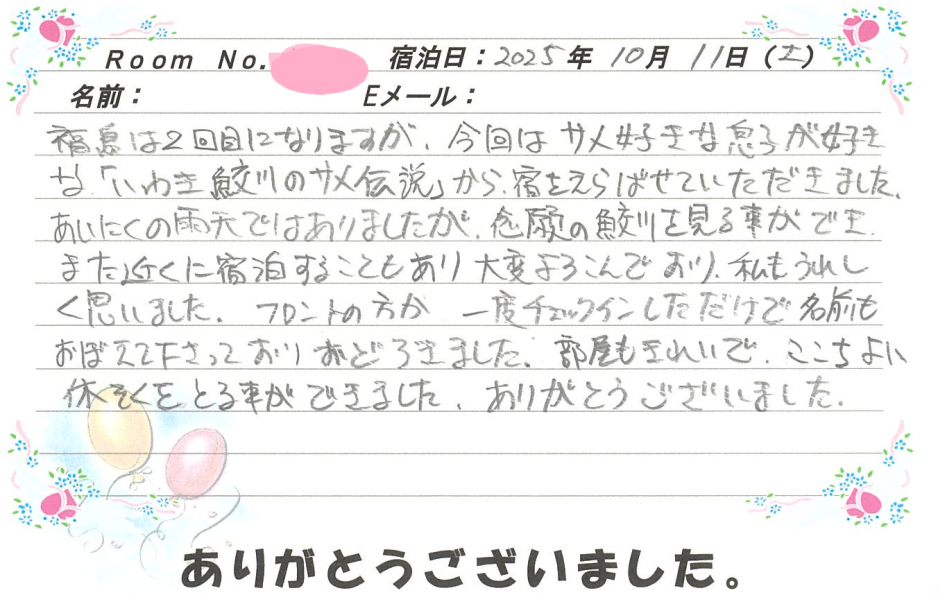 Room No. 宿泊日：2025年 10月 11日（土）
名前： Eメール：
福島は2回目になりますが、今回はサメ好きな息子が好き
な「いわき鮫川のサメ伝説」から、宿をえらばせていただきました。
あいにくの雨天ではありましたが、念願の鮫川を見る事ができ、
また近くに宿泊することもあり大変よろこんでおり、私もうれし
く思いました。フロントの方が一度チェックインしただけで名前も
おぼえて下さっておりおどろきました。部屋もきれいで、ここちよい
休そくをとる事ができました。ありがとうございました。
ありがとうございました。